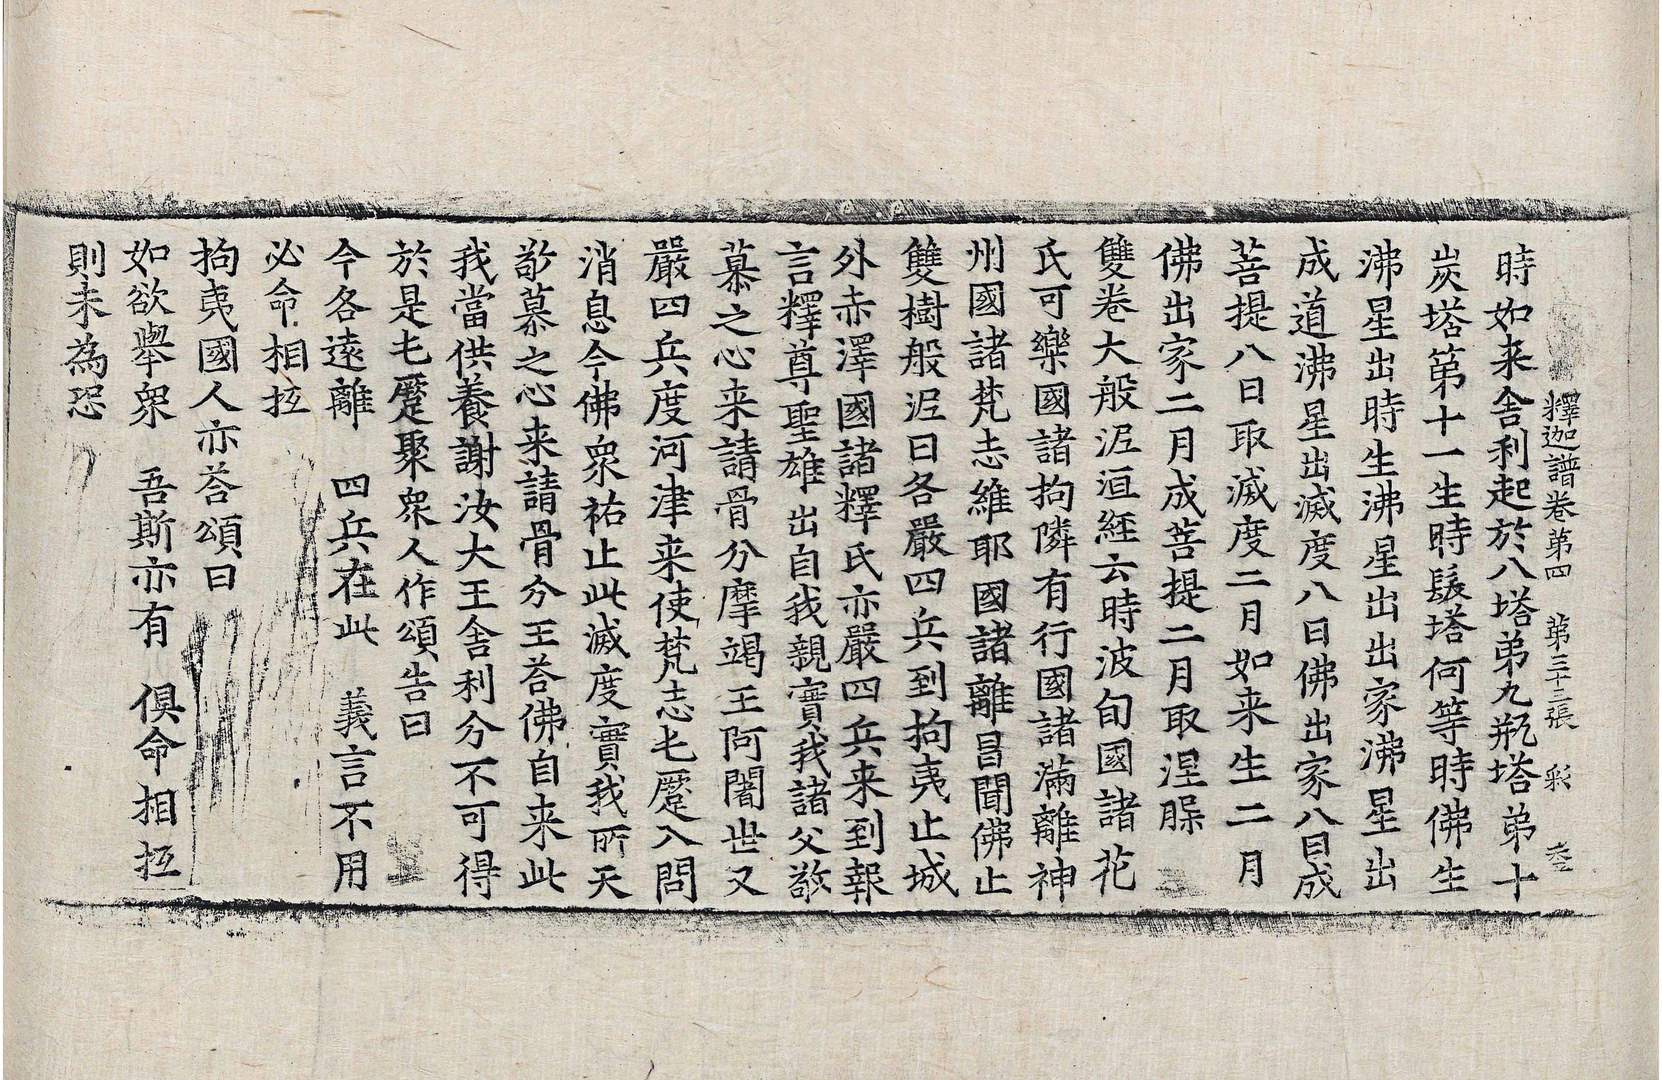 釋迦譜卷第四 第三十三張 彩
時如来舍利起於八塔弟九瓶塔弟十
炭塔第十一生時髮塔何等時佛生
沸星出時生沸星出出家沸星出
成道沸星出滅度八日佛出家八日成
菩提八日取滅度二月如来生二月
佛出家二月成菩提二月取涅槃
雙卷大般泥洹経云時波旬國諸花
氏可樂國諸拘隣有行國諸滿離神
州國諸梵志維耶國諸離昌聞佛止
雙樹般泥曰各嚴四兵到拘夷止城
外赤澤國諸釋氏亦嚴四兵来到報
言釋尊聖雄出自我親實我諸父敬
慕之心来請骨分摩竭王阿闍世又
嚴四兵度河津来使梵志毛蹷入問
消息今佛衆祐止此滅度實我所天
敬慕之心来請骨分王荅佛自来此
我當供養謝汝大王舍利分不可得
於是毛蹷聚衆人作頌告曰
今各遠離 四兵在此 義言不用
必命相抵
拘夷國人亦荅頌曰
如欲舉衆 吾斯亦有 俱命相抵
則未為恐